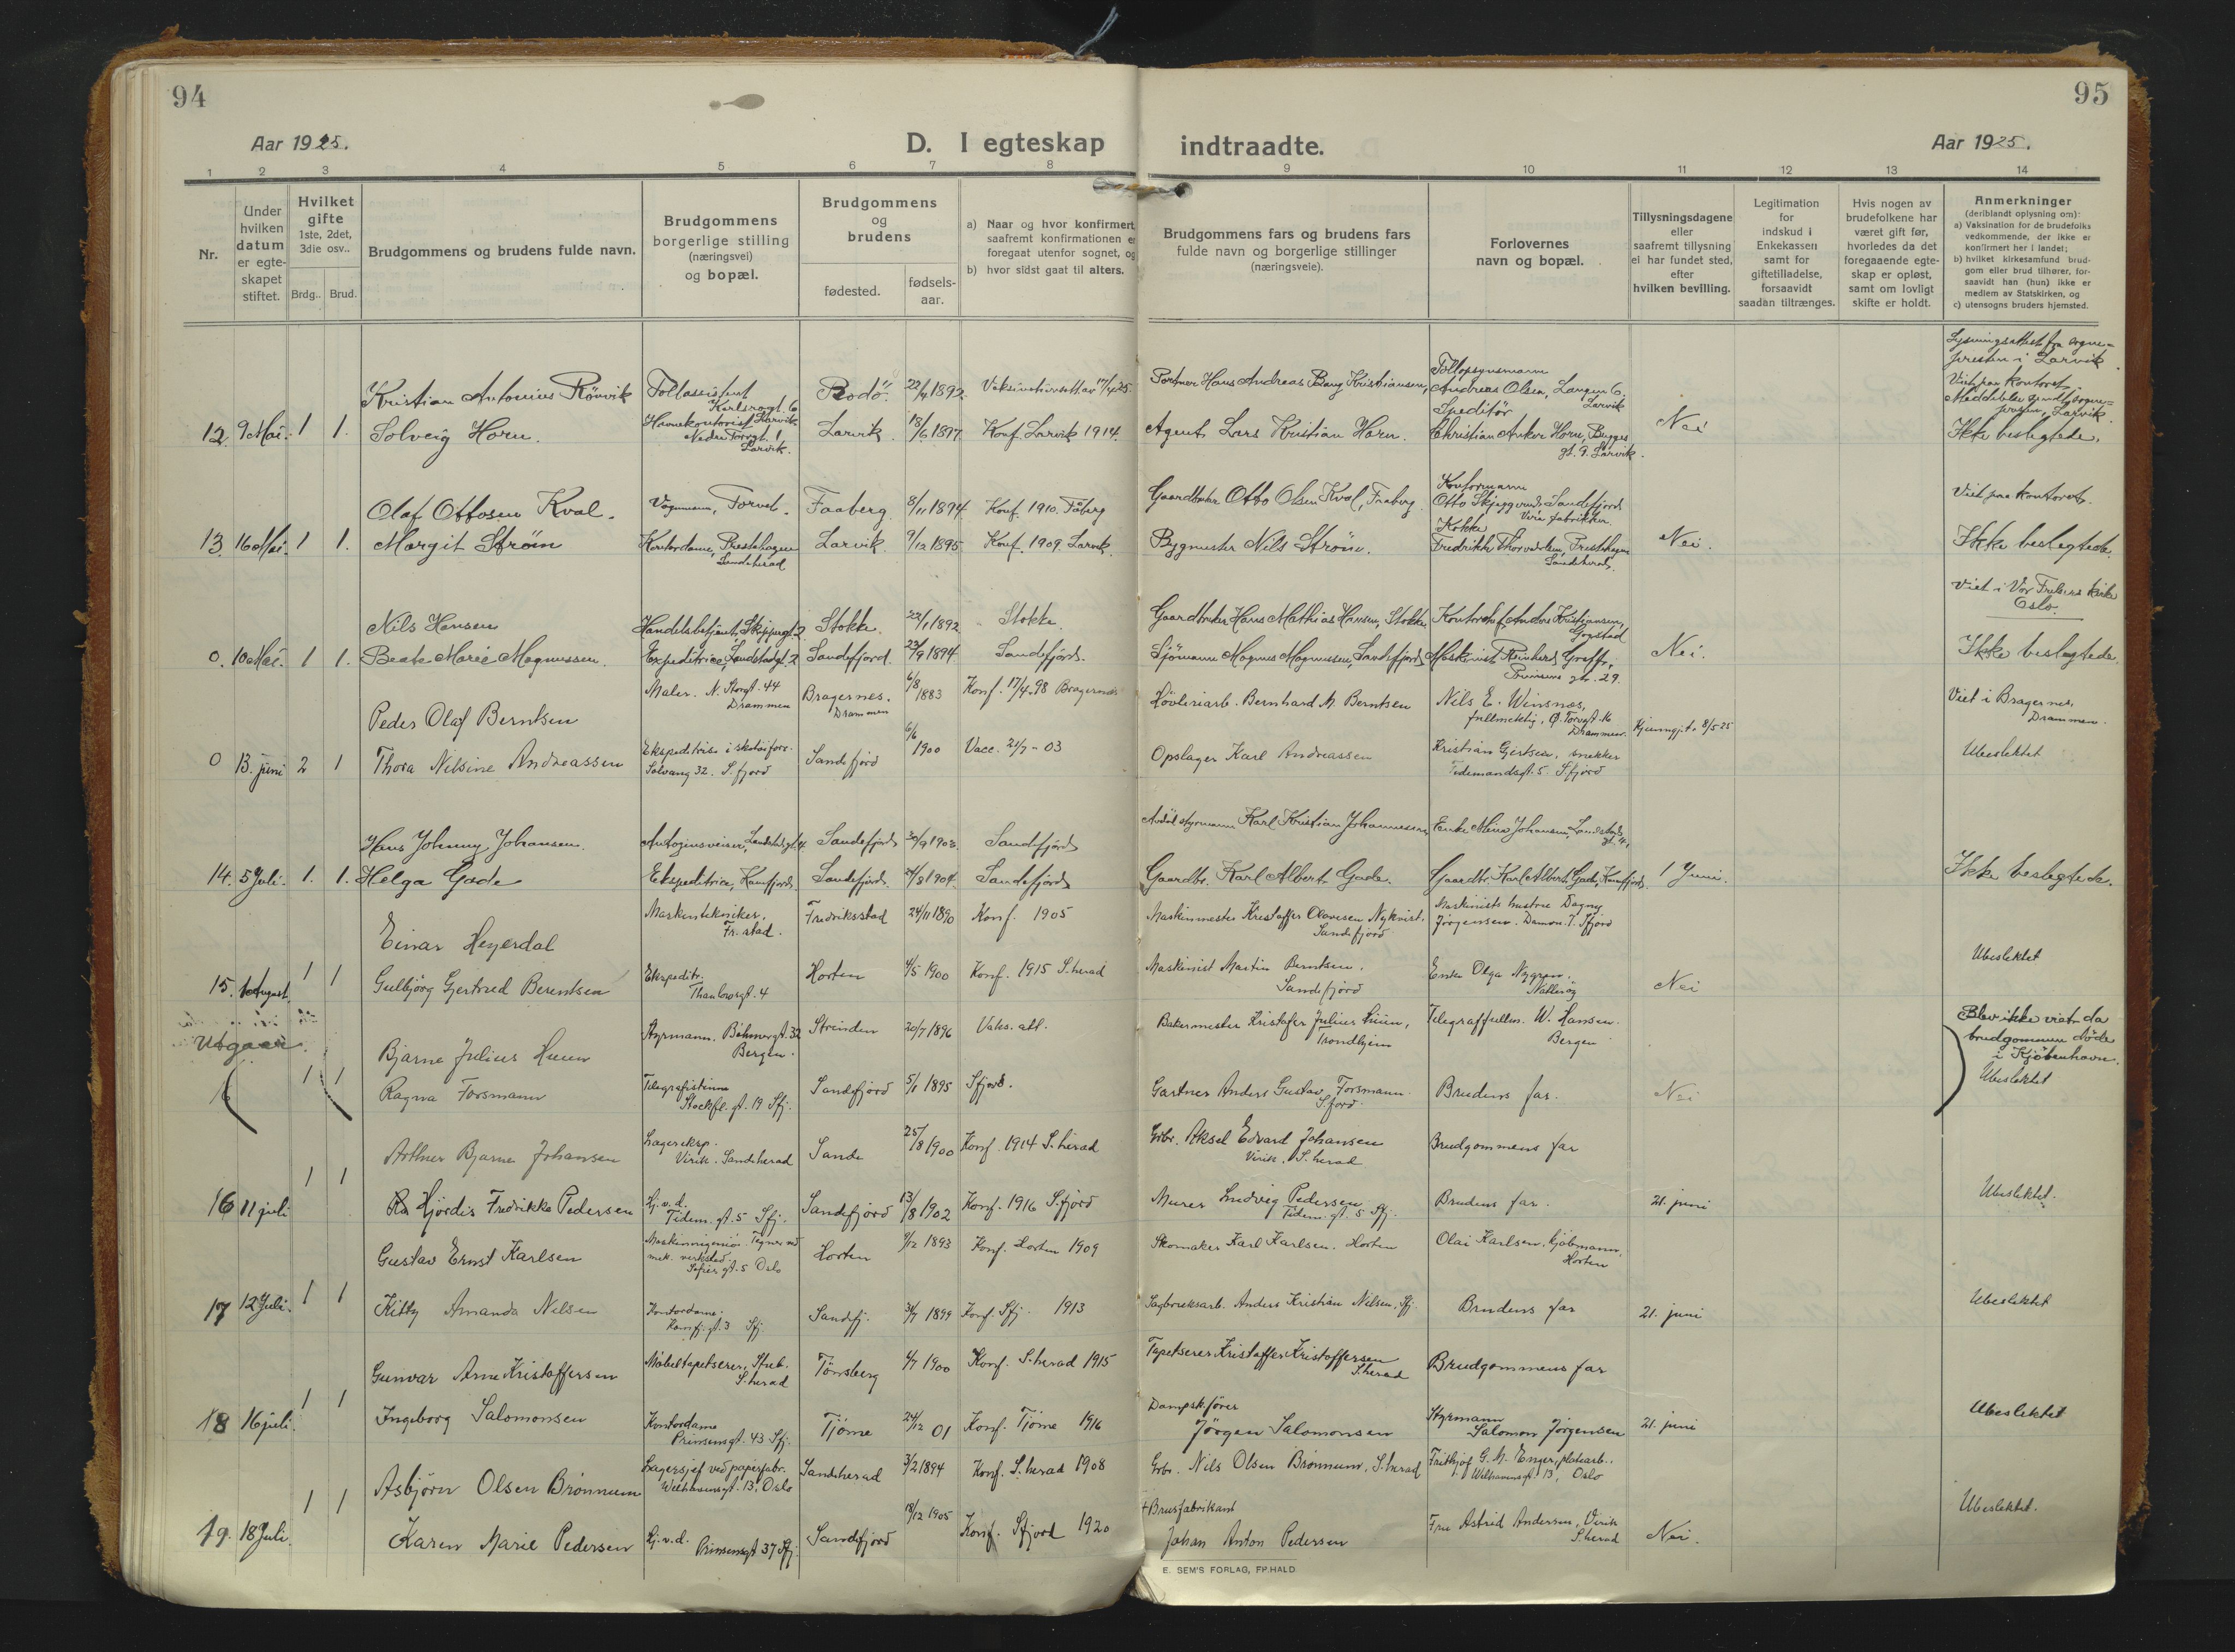 94
95
Aar 1925.
D. I egteskap
indtraadte.
Aar 1925.
1 2 3 4 5 6 7 8 9 10 11 12 13 14
Nr.
Under
hvilken
datum
er egte-
skapet
stiftet.
Hvilket
gifte
1ste, 2det,
3die osv..
Brdg.. Brud.
Brudgommens og brudens fulde navn.
Brudgommens
borgerlige stilling
(næringsvei)
og bopæl.
Brudgommens
og
brudens
fødested.
fødsels-
aar.
a) Naar og hvor konfirmert
saafremt konfirmationen er
foregaat utenfor sognet, og
b) hvor sidst gaat til alters.
Brudgommens fars og brudens fars
fulde navn og borgerlige stillinger
(næringsveie).
Forlovernes
navn og bopæl.
Tillysningsdagene
eller
saafremt tillysning
ei har fundet sted,
efter
hvilken bevilling.
Legitimation
for
indskud i
Enkekassen
samt for
giftetilladelse,
forsaavidt
saadan tiltrænges.
Hvis nogen av
brudefolkene har
været gift før,
hvorledes da det
foregaaende egte-
skap er opløst,
samt om lovligt
skifte er holdt.
Anmerkninger
(deriblandt oplysning om):
a) Vaksination for de brudefolks
vedkommende, der ikke er
konfirmert her i landet;
b) hvilket kirkesamfund brud-
gom eller brud tilhører, for-
saavidt han (hun) ikke er
medlem av Statskirken, og
c) utensogns bruders hjemsted.
Lysningsattest fra sogne-
presten i Larvik.
Kristian Antonius Rönvik
Tollassistent
Karlsrogt. 6
Larvik
Bodö.
22/4 1892.
Vaksinationsatt. av 17/4 25.
Portner Hans Andreas Bang Kristiansen,
Tollopsynsmann
Andreas Olsen, Langen 6,
Larvik
Viet paa kontoret.
Meddelelse sendt sogne-
presten, Larvik.
12. 9 Mai. 1 1.
Solveig Horn.
Havnekontorist
Nedre Torvgt. 1
Larvik.
Larvik
18/6 1897
Konf. Larvik 1914.
Agent Lars Kristian Horn.
Speditör
Christian Anker Horn, Bugges
gt. 9. Larvik.
Nei
Ikke beslegtede.
Olaf Ottosen Kval.
Vognmann, Torvet.
Faaberg.
8/11 1894
Konf. 1910. Fåberg
Gaardbruker Otto Olsen Kval, Faaberg.
Kontormann
Otto Skjeggerud, Sandefjord
Vera fabrikker.
Viet paa kontoret.
13. 16 Mai. 1 1.
Margit Ström
Kontordame, Prestehagen
Sandeherad
Larvik.
9/12 1895
Konf. 1909. Larvik.
Bygmester Nils Ström.
Kokke
Fredrikke Thorvaldsen, Prestehagen
Sandeherad.
Nei.
Ikke beslegtede.
Viet i Vor Frelsers kirke
Oslo.
Nils Hansen
Handelsbetjent, Skippergt. 2
Stokke.
22/1 1892.
Stokke
Gaardbruker Hans Mathias Hansen, Stokke
Kontorchef Anders Kristiansen,
Gogstad
0. 10 Mai. 1 1.
Beate Marie Magnussen.
Expeditrice, Landstadgt. 2
Sandefjord.
23/9 1894
Sandefjord.
Sjömann Magnus Magnussen, Sandefjord
Maskinist Reinhard Graff,
Prinsens gt. 29.
Nei.
Ikke beslegtede.
Peder Olaf Berntsen
Maler. N. Storgt. 44
Drammen
Bragernes.
Drammen
6/8 1883
Konf. 17/4.98 Bragernes
Høvleriarb. Bernhard M. Berntsen
Nils E. Winsnæs,
fullmektig, Ø. Torvgt. 16
Drammen.
Kjunngj. t. 8/5 25
Viet i Bragernes,
Drammen.
0 13. juni 2 1
Thora Nilsine Andreassen
Ekspeditrise i skotøiforr.
Solvang 32. S.fjord
Sandefjord
6/6 1900
Vacc. 21/7 - 03
Opslager Karl Andreassen
Kristian Gjertsen, snekker
Tidemandsgt. 5. S.fjord
Ubeslektet
Hans Johnny Johansen.
Autogensveiser, Landstadsgt. 4.
Sandefjord
30/9 1902.
Sandefjord
Avdöd styrmann Karl Kristian Johannessen,
Enke Mina Johansen, Landstads
gt. 4,
14. 5 Juli. 1. 1.
Helga Gade
Ekspeditrice, Kamfjord.
Sandefjord.
21/8 1904.
Sandefjord
Gaardbr. Karl Albert Gade.
Gaardbr. Karl Albert Gade, Kamfjord.
1 Juni.
Ikke beslegtede.
Einar Heyerdal
Maskintekniker.
Fr.stad.
Fredriksstad
24/11 1890
Konf. 1905
Maskinmester Kristoffer Olavesen Nykvist.
Sandefjord
Maskinists hustru Dagny
Jørgensen. Damon. 7. Sfjord
15. 1 August. 1 1
Gulbjörg Gjertrud Berentsen
Ekspeditr.
Thaulowsgt. 4
Horten
4/5 1900
Konf. 1915 S.herad
Maskinist Martin Berntsen.
Sandefjord
Enke Olga Nygren.
Nøtterøy
Nei
Ubeslektet
Utgaar.
Bjarne Julius Huun
Styrmann. Böhmergt. 32
Bergen.
Strinden
20/7 1896
Vaks. att.
Bakermester Kristofer Julius Huun,
Trondhjem
Telegraffullm. W. Hansen.
Bergen
Blev ikke viet da
brudgommen döde
i Kjöbenhavn.
16 1 1
Ragna Forsmann
Telegrafistinne
Stockfl. gt. 19 Sfj.
Sandefjord
5/1 1895
Sfjord.
Gartner Anders Gustav Forsmann.
S.fjord.
Brudens far.
Nei
Ubeslektet
Arthur Bjarne Johansen
Lagereksp.
Virik. Sandeherad
Sande
25/8 1900
Konf. 1914 S.herad
Grbr. Aksel Edvard Johansen
Virik. S.herad
Brudgommens far
16 11 juli 1 1
Hjördis Fredrikke Pedersen
Hj.v.d.
Tidem. gt. 5 Sfj.
Sandefjord
13/8 1902
Konf. 1916 S.fjord
Murer Ludvig Pedersen
Tidem. gt. 5 Sfj.
Brudens far.
21. juni
Ubeslektet.
Gustav Ernst Karlsen
Maskiningeniör. Tegner ved
mek. verksted.
Sofies gt. 5 Oslo
Horten
9/12 1893
Konf. Horten 1909
Skomaker Karl Karlsen. Horten
Olai Karlsen, kjøbmann,
Horten
17 12 Juli. 1 1
Kitty Amanda Nilsen
Kontordame.
Kamfj. gt. 3 Sfj.
Sandefj.
31/7 1899
Konf. Sfj. 1913
Sagbruksarb. Anders Kristian Nilsen, Sfj.
Brudens far
21. juni
Ubeslektet
Gunvar Arne Kristoffersen
Møbeltapetserer, Stub.
S.herad
Tønsberg
4/7 1900
Konf. S.herad 1915
Tapetserer Kristoffer Kristoffersen
S.herad
Brudgommens far
18 16 juli. 1 1
Ingeborg Salomonsen
Kontordame
Prinsensgt. 43 Sfj.
Tjöme
24/12 01
Konf. Tjöme 1916
Dampsk.fører
Jörgen Salomonsen
Styrmann
Salomon Jørgensen
21. juni
Ubeslektet
Asbjørn Olsen Brønnum
Lagersjef ved papirfabr.
Welhavensgt. 13, Oslo
Sandeherad
3/2 1894
Konf. S.herad 1908
Grbr. Nils Olsen Brønnum, S.herad
Frithjof G. M. Enger, platearb.
Welhavensgt. 13, Oslo
19. 18 Juli. 1 1
Karen Marie Pedersen
Hj.v.d. Prinsensgt 37 Sfj.
Sandefjord
18/12 1905
Konf. Sfjord 1920
+ Brusfabrikant
Johan Anton Pedersen
Fru Astrid Andersen, Virik
S.herad
Nei.
Ubeslektet.
E. SEM'S FORLAG, FR.HALD